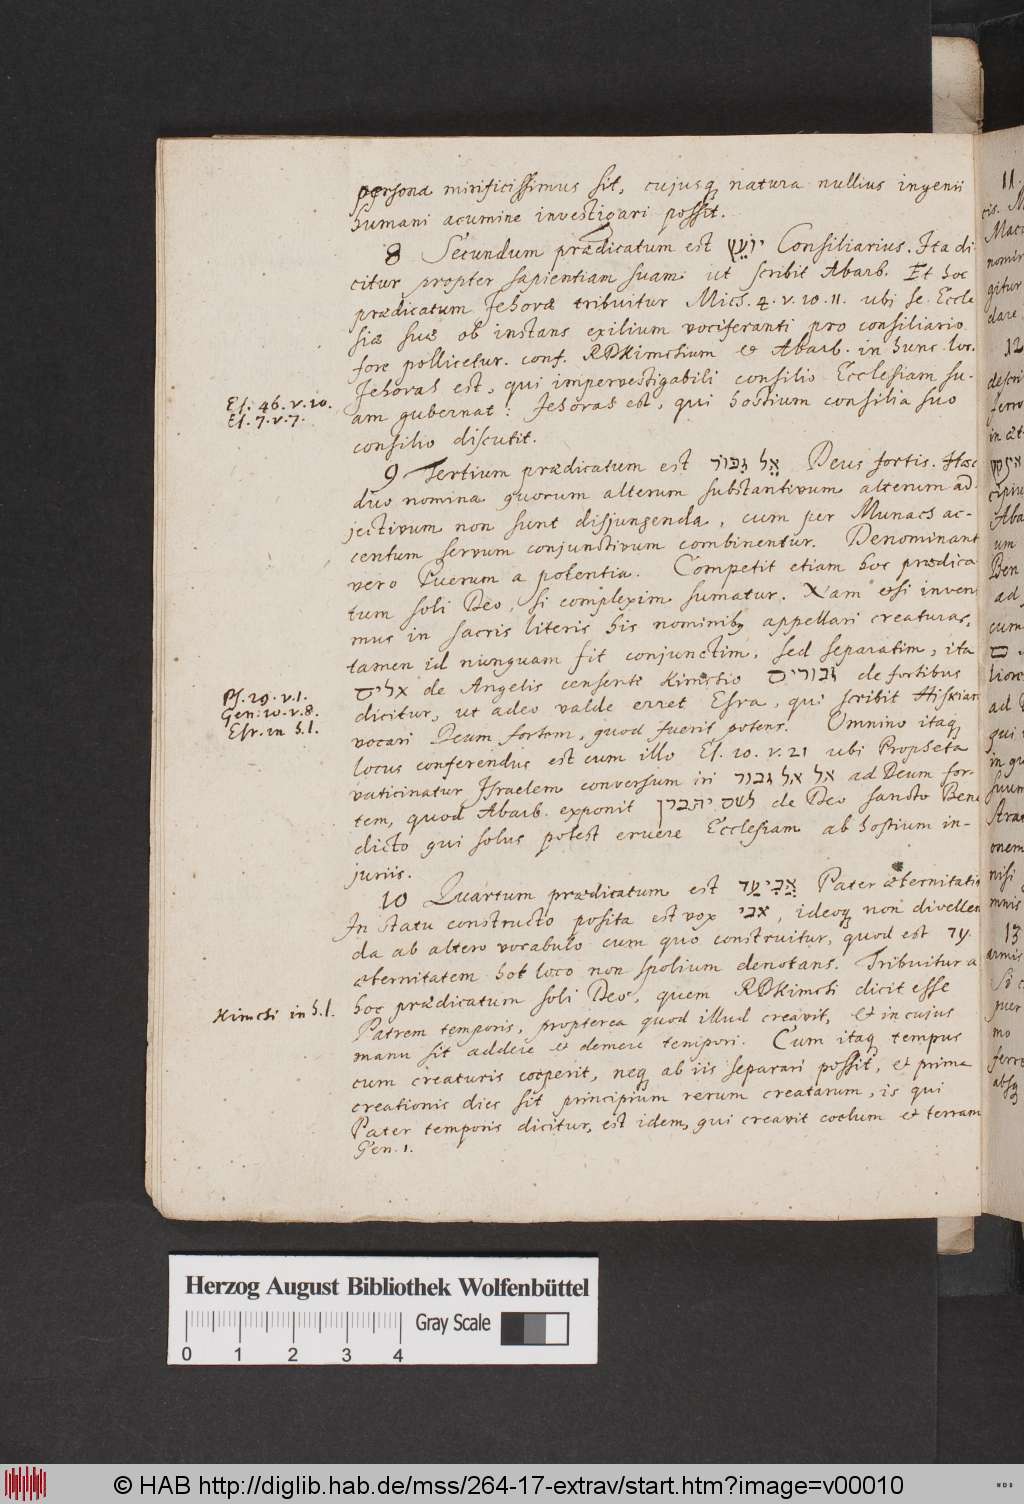 persona mirificissimus sit, cujusq natura nullius ingenii
humani acumine investigari possit.
8 Secundum prædicatum est יוֹעֵץ Consiliarius. Ita di
citur propter sapientiam suam ut scribit Abarb. Et hoc
prædicatum Jehovæ tribuitur Mich. 4. v. 10. 11. ubi se Eccle
siæ suæ ob instans exilium vociferanti pro consiliario
fore pollicetur. conf. RDKimchium et Abarb. in hunc loc.
Jehovah est, qui impervestigabili consilio Ecclesiam su-
Es. 46. v. 10.
am gubernat: Jehovah est, qui hostium consilia suo
Es. 7. v. 7.
consilio discutit.
9 Tertium prædicatum est אֵל גִּבּוֹר Deus fortis. Hæc
duo nomina quorum alterum substantivum alterum ad-
jectivum non sunt disjungenda, cum per Munach ac-
centum servum conjunctivum combinentur. Denominant
vero Puerum a potentia. Competit etiam hoc prædica
tum soli Deo, si complexim sumatur. Nam etsi inven
mus in sacris literis his nominib9 appellari creaturas,
tamen id nunquam fit conjunctim, sed separatim, ita
אלים de Angelis censente Kimchio גבורים de fortibus
Ps. 29. v. 1.
Gen: 10. v. 8.
Esr. in h. l.
dicitur, ut adeo valde erret Esra, qui scribit Hiskiam
vocari Deum fortem, quod fuerit potens. Omnino itaq
locus conferendus est cum illo Es. 10. v. 21 ubi Propheta
vaticinatur Israelem conversum iri אל אל גבור ad Deum for-
tem, quod Abarb. exponit לשם יתברך de Deo sancto Bene
dicto qui solus potest eruere Ecclesiam ab hostium in-
juriis.
10 Quartum prædicatum est אֲבִיעַד Pater æternitatis
In statu constructo posita est vox אבי, ideoq non divellen
da ab altero vocabulo cum quo construitur, quod est עד
æternitatem hot loco non spolium denotans. Tribuitur a
Kimchi in h. l.
hoc prædicatum soli Deo, quem RDKimchi dicit esse
Patrem temporis, propterea quod illud creavit, et in cujus
manu sit addere et demere tempori. Cum itaq tempus
cum creaturis coeperit, neq ab iis separari possit, et prima
creationis dies sit principium rerum creatarum, is qui
Pater temporis dicitur, est idem, qui creavit coelum et terram
Gen. 1.
11.
12
13
Herzog August Bibliothek Wolfenbüttel
Gray Scale
0 1 2 3 4
© HAB http://diglib.hab.de/mss/264-17-extrav/start.htm?image=v00010